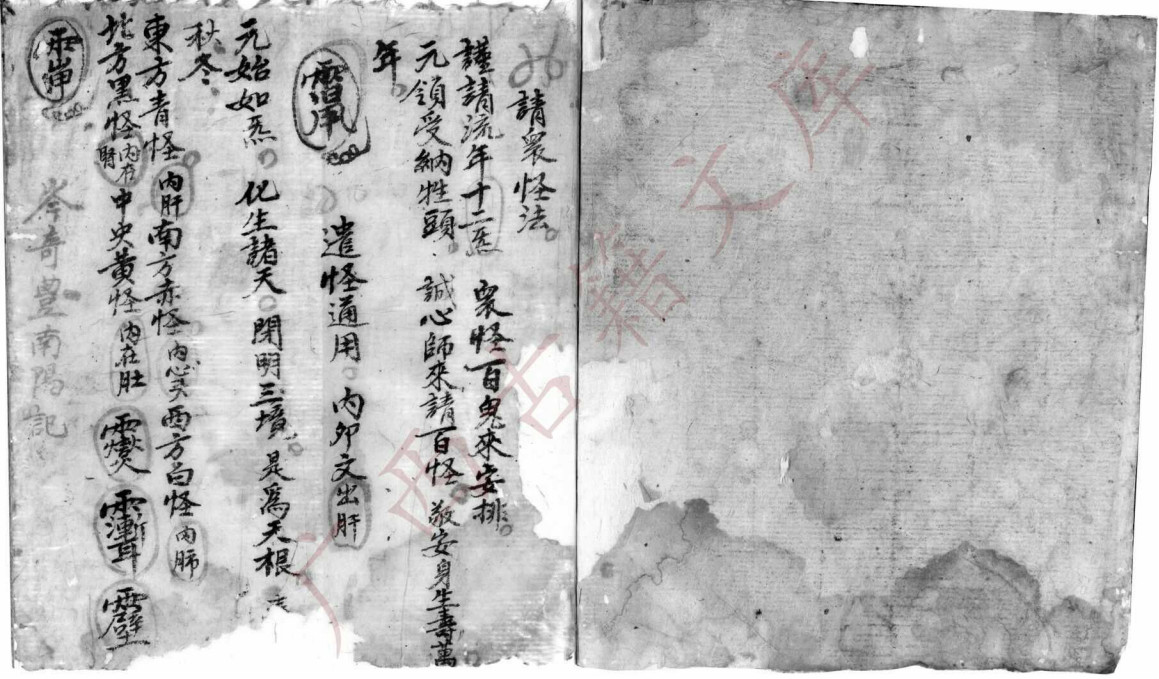 請衆怪法
謹請流年十二炁 衆怪百鬼來安排
元領受納牲頭 誠心師來請百怪 敬安身生壽萬
年
遣怪通用 內卯文出肝
元始如炁 化生諸天 開明三境 是爲天根
秋冬
東方青怪 內肝 南方赤怪 內心 西方白怪 內肺
北方黑怪 內在腎 中央黃怪 內在肚
岑奇豊南陽記
广西古籍文库